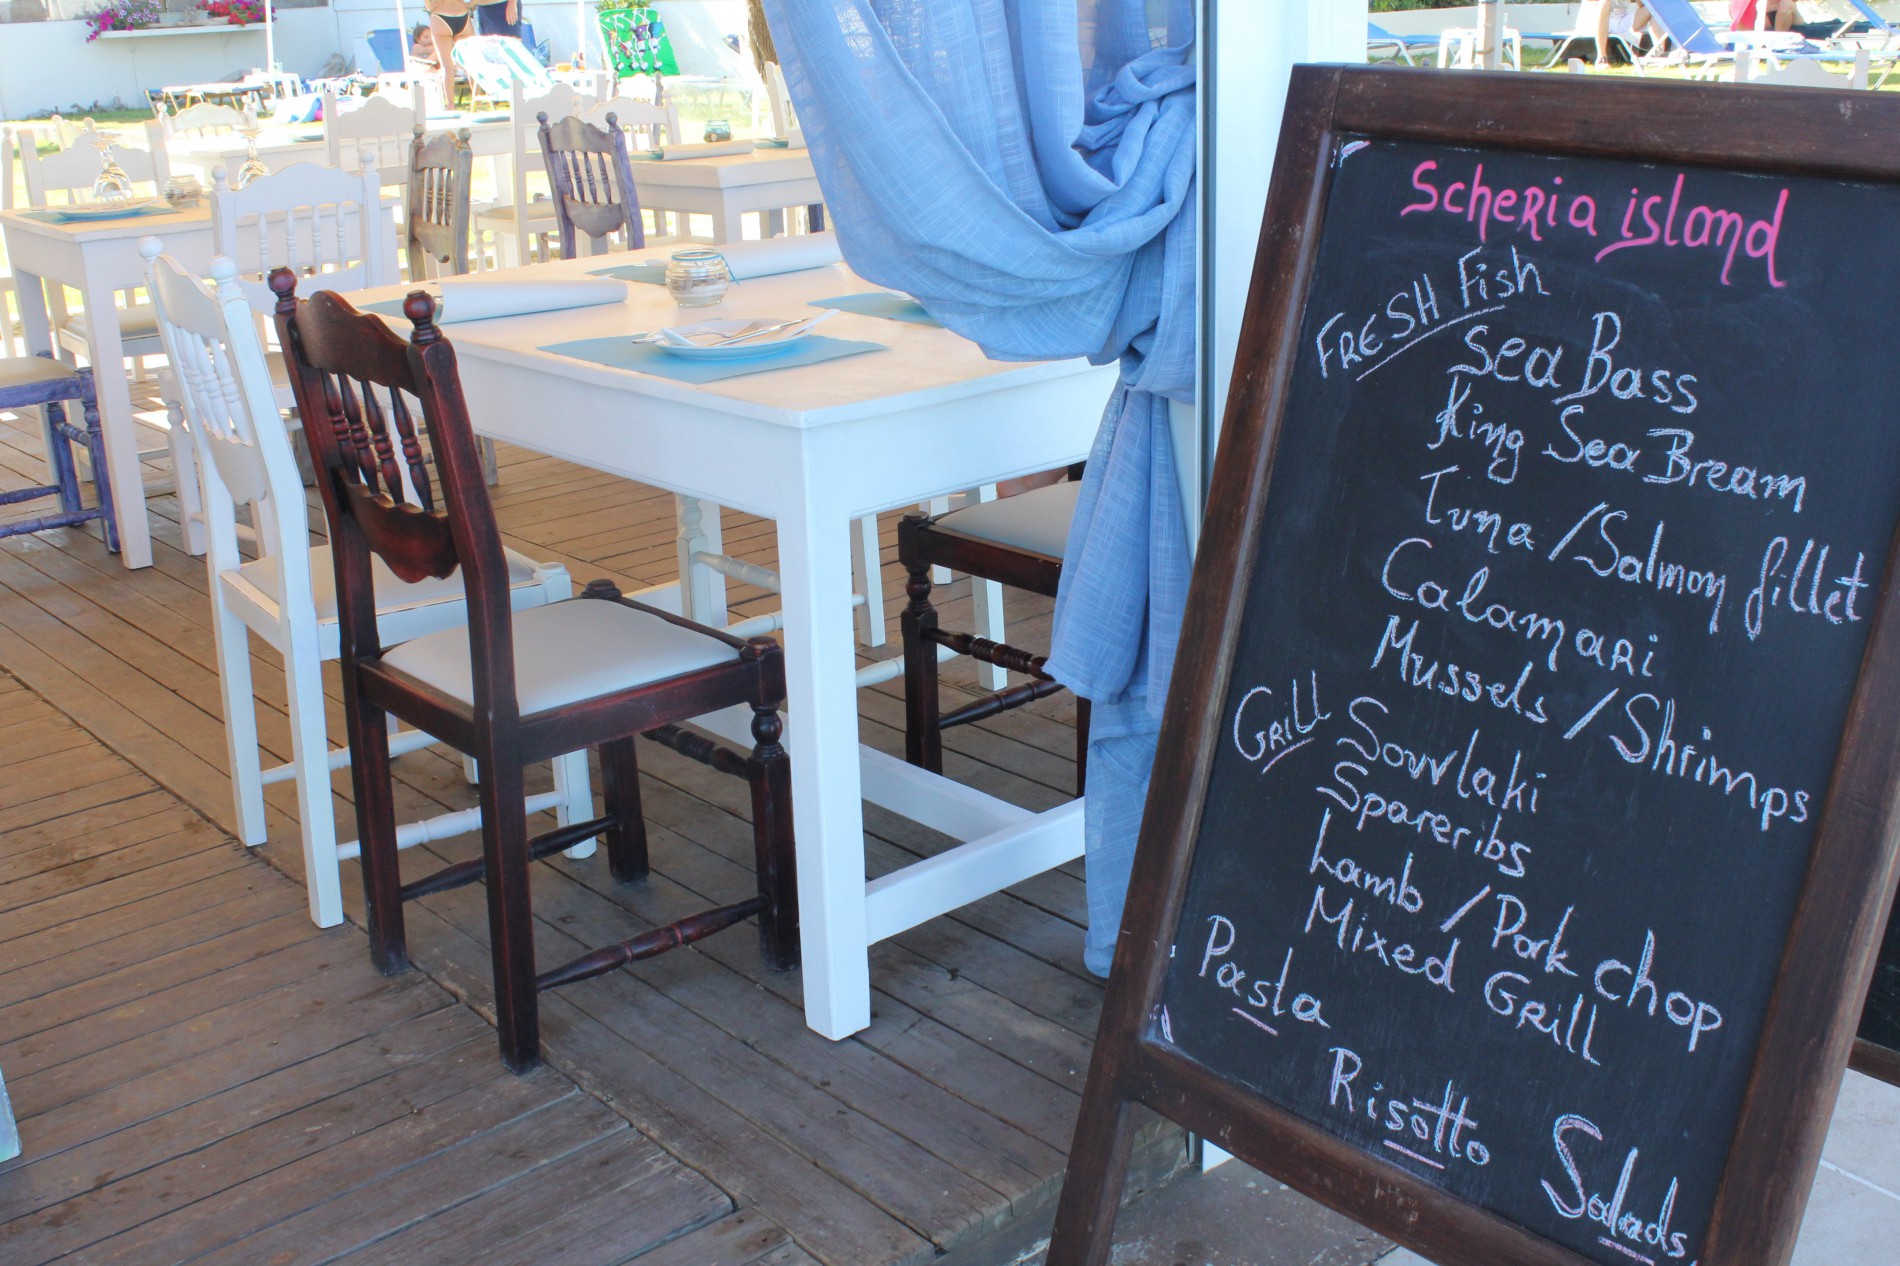 Scheria island
FRESH Fish
Sea Bass
King Sea Bream
Tuna / Salmon fillet
Calamari
Mussels / Shrimps
Grill Souvlaki
Spareribs
Lamb / Pork chop
Mixed Grill
Pasta
Risotto
Salads